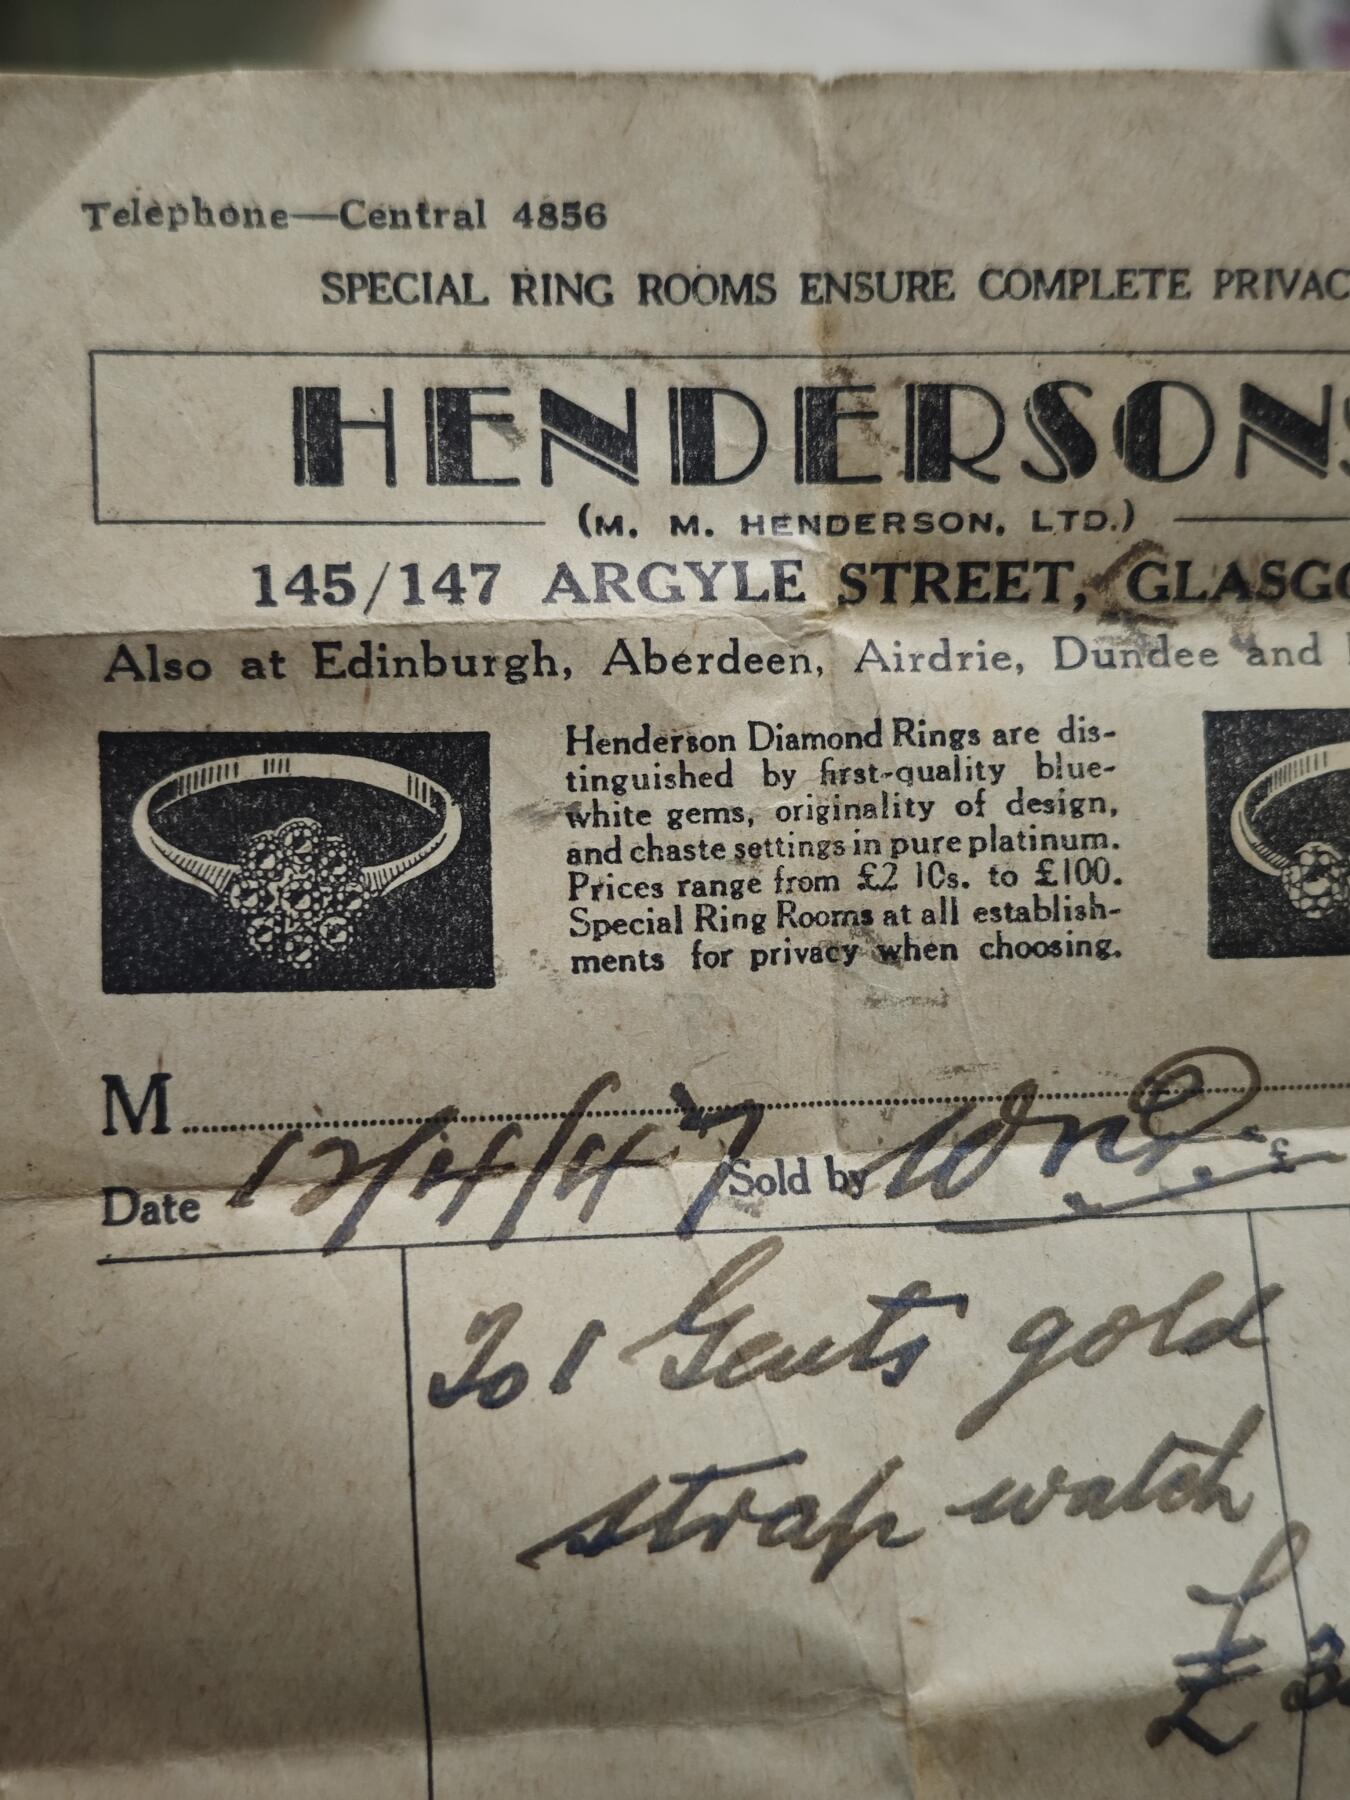 Telephone—Central 4856
SPECIAL RING ROOMS ENSURE COMPLETE PRIVAC
HENDERSONS
(M. M. HENDERSON, LTD.)
145/147 ARGYLE STREET, GLASGO
Also at Edinburgh, Aberdeen, Airdrie, Dundee and
Henderson Diamond Rings are dis-
tinguished by first-quality blue-
white gems, originality of design,
and chaste settings in pure platinum.
Prices range from £2 10s. to £100.
Special Ring Rooms at all establish-
ments for privacy when choosing.
M
Date 12/4/47 Sold by
To 1 Gents gold
strap watch
£ 3